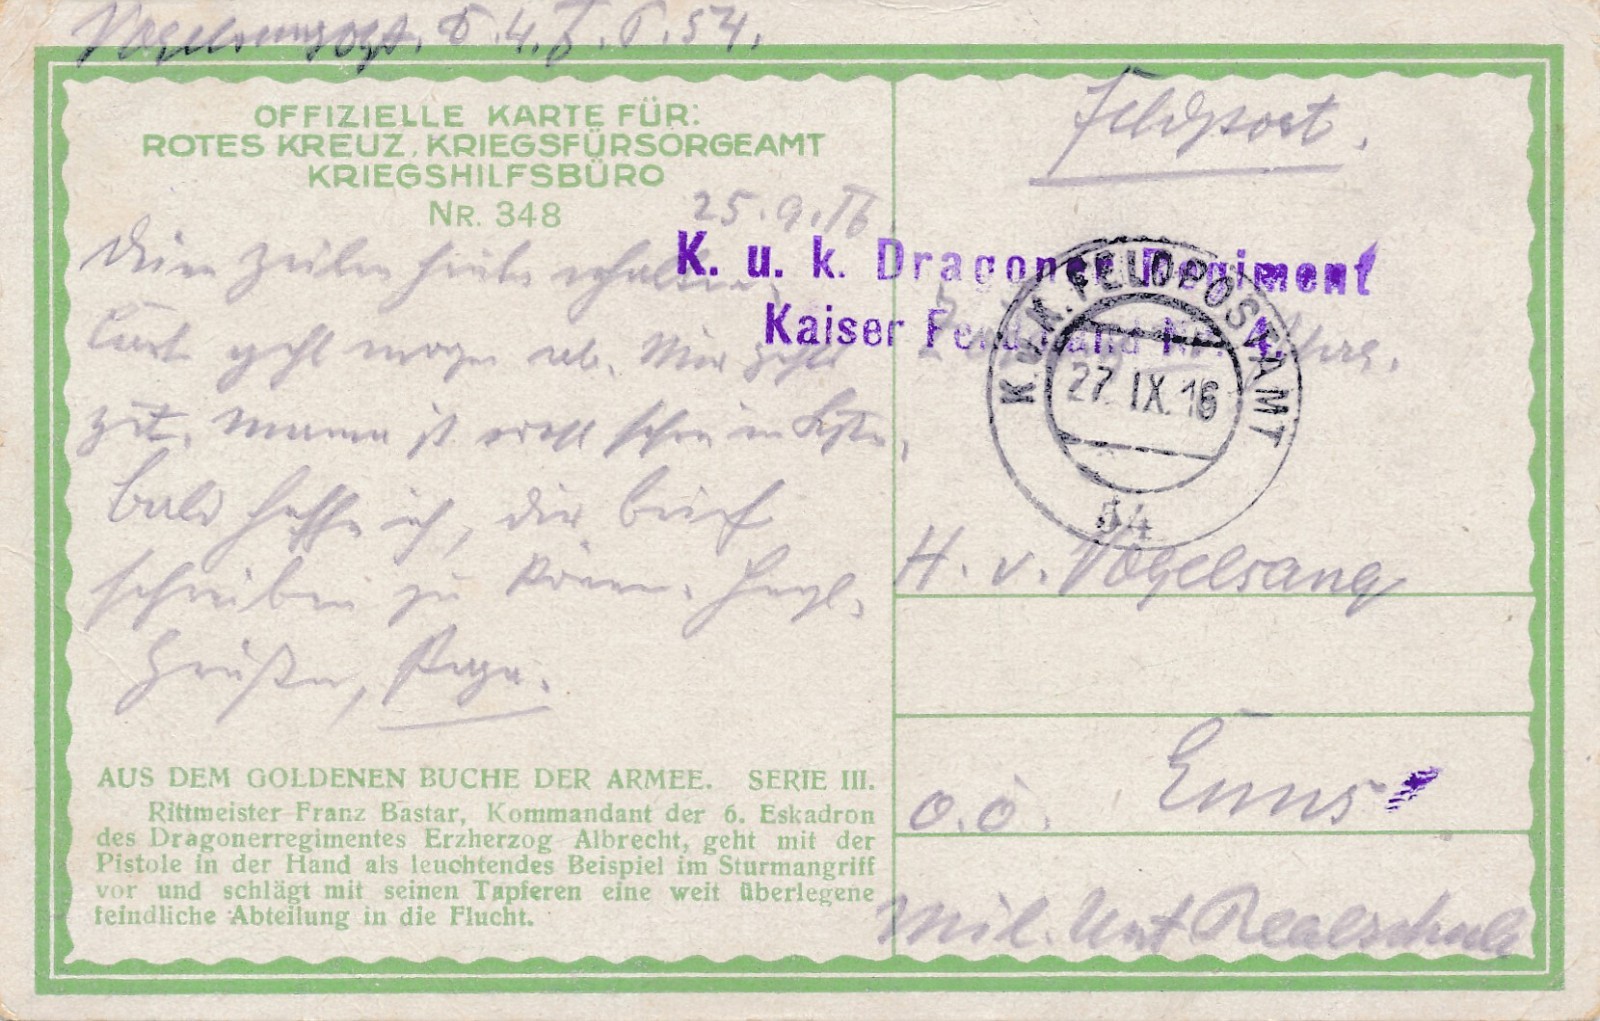 D. 4. F. P. 54.
OFFIZIELLE KARTE FÜR:
ROTES KREUZ, KRIEGSFÜRSORGEAMT
KRIEGSHILFSBÜRO
NR. 348
25. 9. 16
Deine Zeilen heute erhalten.
Curt geht morgen ab. Mir geht
gut. Mama ist wohl schon in
Bald hoffe ich, dir Brief
schreiben zu können. Herzl.
Grüße, Papa.
AUS DEM GOLDENEN BUCHE DER ARMEE. SERIE III.
Rittmeister Franz Bastar, Kommandant der 6. Eskadron
des Dragonerregimentes Erzherzog Albrecht, geht mit der
Pistole in der Hand als leuchtendes Beispiel im Sturmangriff
vor und schlägt mit seinen Tapferen eine weit überlegene
feindliche Abteilung in die Flucht.
Feldpost.
K. u. k. Dragoner Regiment
Kaiser Ferdinand Nr. 4.
K.u.K. FELDPOSTAMT
27. IX. 16
54
H. v. Vogelsang
Enns
O.Ö.
Mil. Unt Realschule